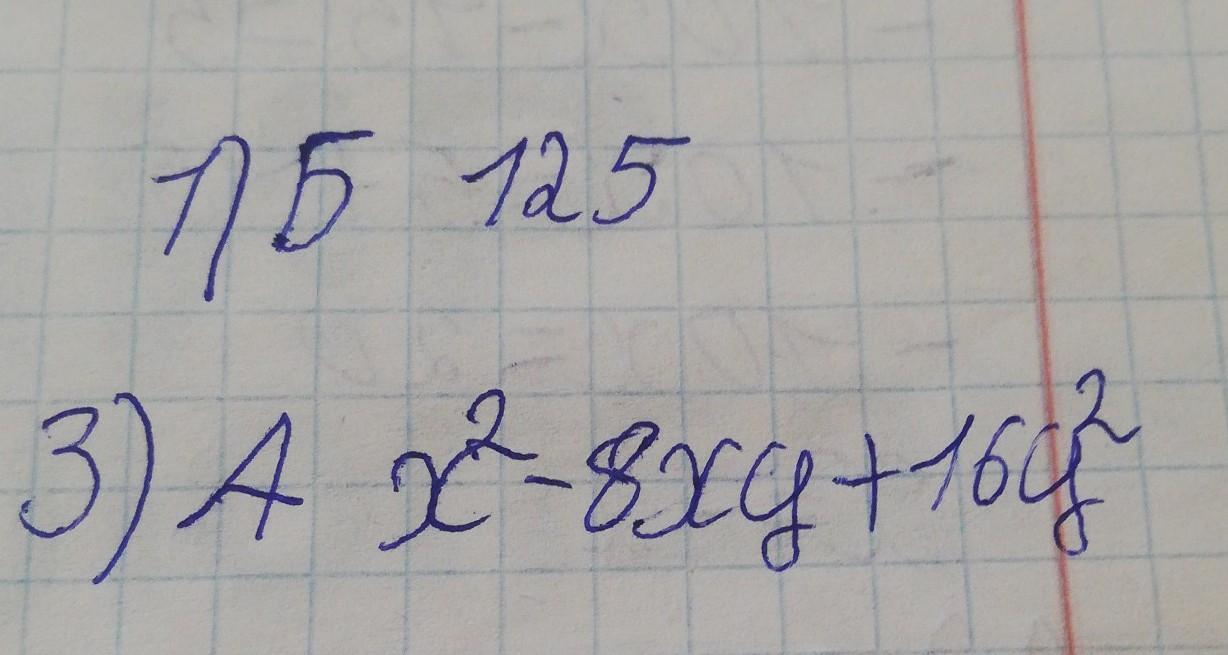 1) Б 125
3) А x² - 8xy + 16y²